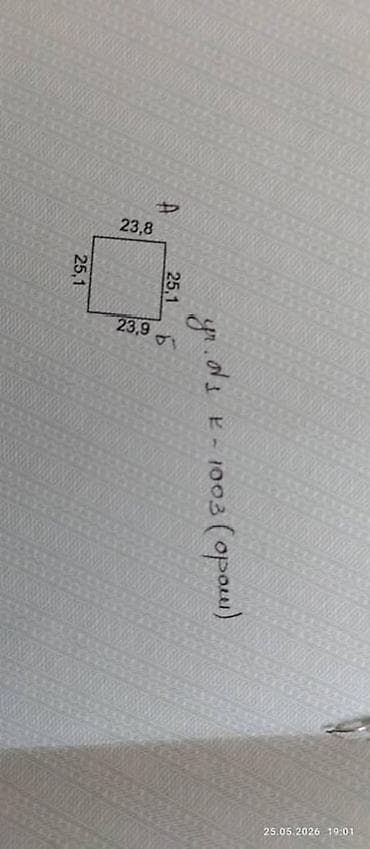 А
23,8
25,1
25,1
23,9
Б
уч. №1 к-1003 (ораш)
25.05.2026 19:01